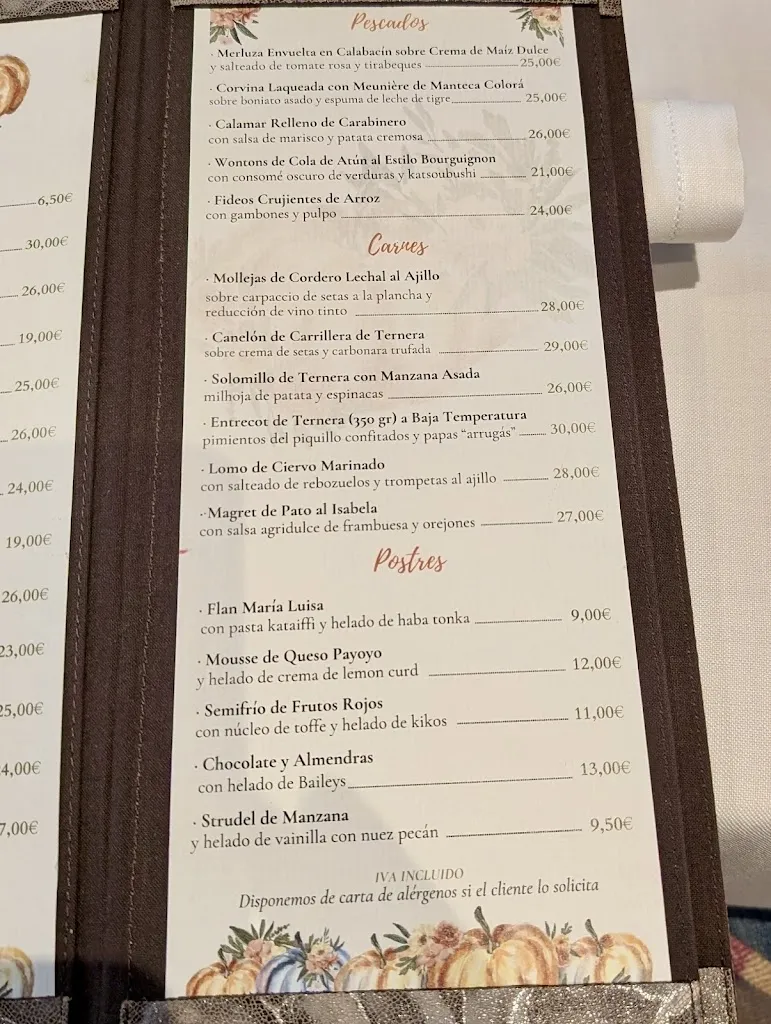 6,50€
30,00€
26,00€
19,00€
25,00€
26,00€
24,00€
19,00€
26,00€
23,00€
25,00€
4,00€
7,00€
Pescados
· Merluza Envuelta en Calabacín sobre Crema de Maíz Dulce
y salteado de tomate rosa y tirabeques 25,00€
· Corvina Laqueada con Meunière de Manteca Colorá
sobre boniato asado y espuma de leche de tigre 25,00€
· Calamar Relleno de Carabinero
con salsa de marisco y patata cremosa 26,00€
· Wontons de Cola de Atún al Estilo Bourguignon
con consomé oscuro de verduras y katsoubushi 21,00€
· Fideos Crujientes de Arroz
con gambones y pulpo 24,00€
Carnes
· Mollejas de Cordero Lechal al Ajillo
sobre carpaccio de setas a la plancha y
reducción de vino tinto 28,00€
· Canelón de Carrillera de Ternera
sobre crema de setas y carbonara trufada 29,00€
· Solomillo de Ternera con Manzana Asada
milhoja de patata y espinacas 26,00€
· Entrecot de Ternera (350 gr) a Baja Temperatura
pimientos del piquillo confitados y papas “arrugás” 30,00€
· Lomo de Ciervo Marinado
con salteado de rebozuelos y trompetas al ajillo 28,00€
· Magret de Pato al Isabela
con salsa agridulce de frambuesa y orejones 27,00€
Postres
· Flan María Luisa
con pasta kataiffi y helado de haba tonka 9,00€
· Mousse de Queso Payoyo
y helado de crema de lemon curd 12,00€
· Semifrío de Frutos Rojos
con núcleo de toffe y helado de kikos 11,00€
· Chocolate y Almendras
con helado de Baileys 13,00€
· Strudel de Manzana
y helado de vainilla con nuez pecán 9,50€
IVA INCLUIDO
Disponemos de carta de alérgenos si el cliente lo solicita